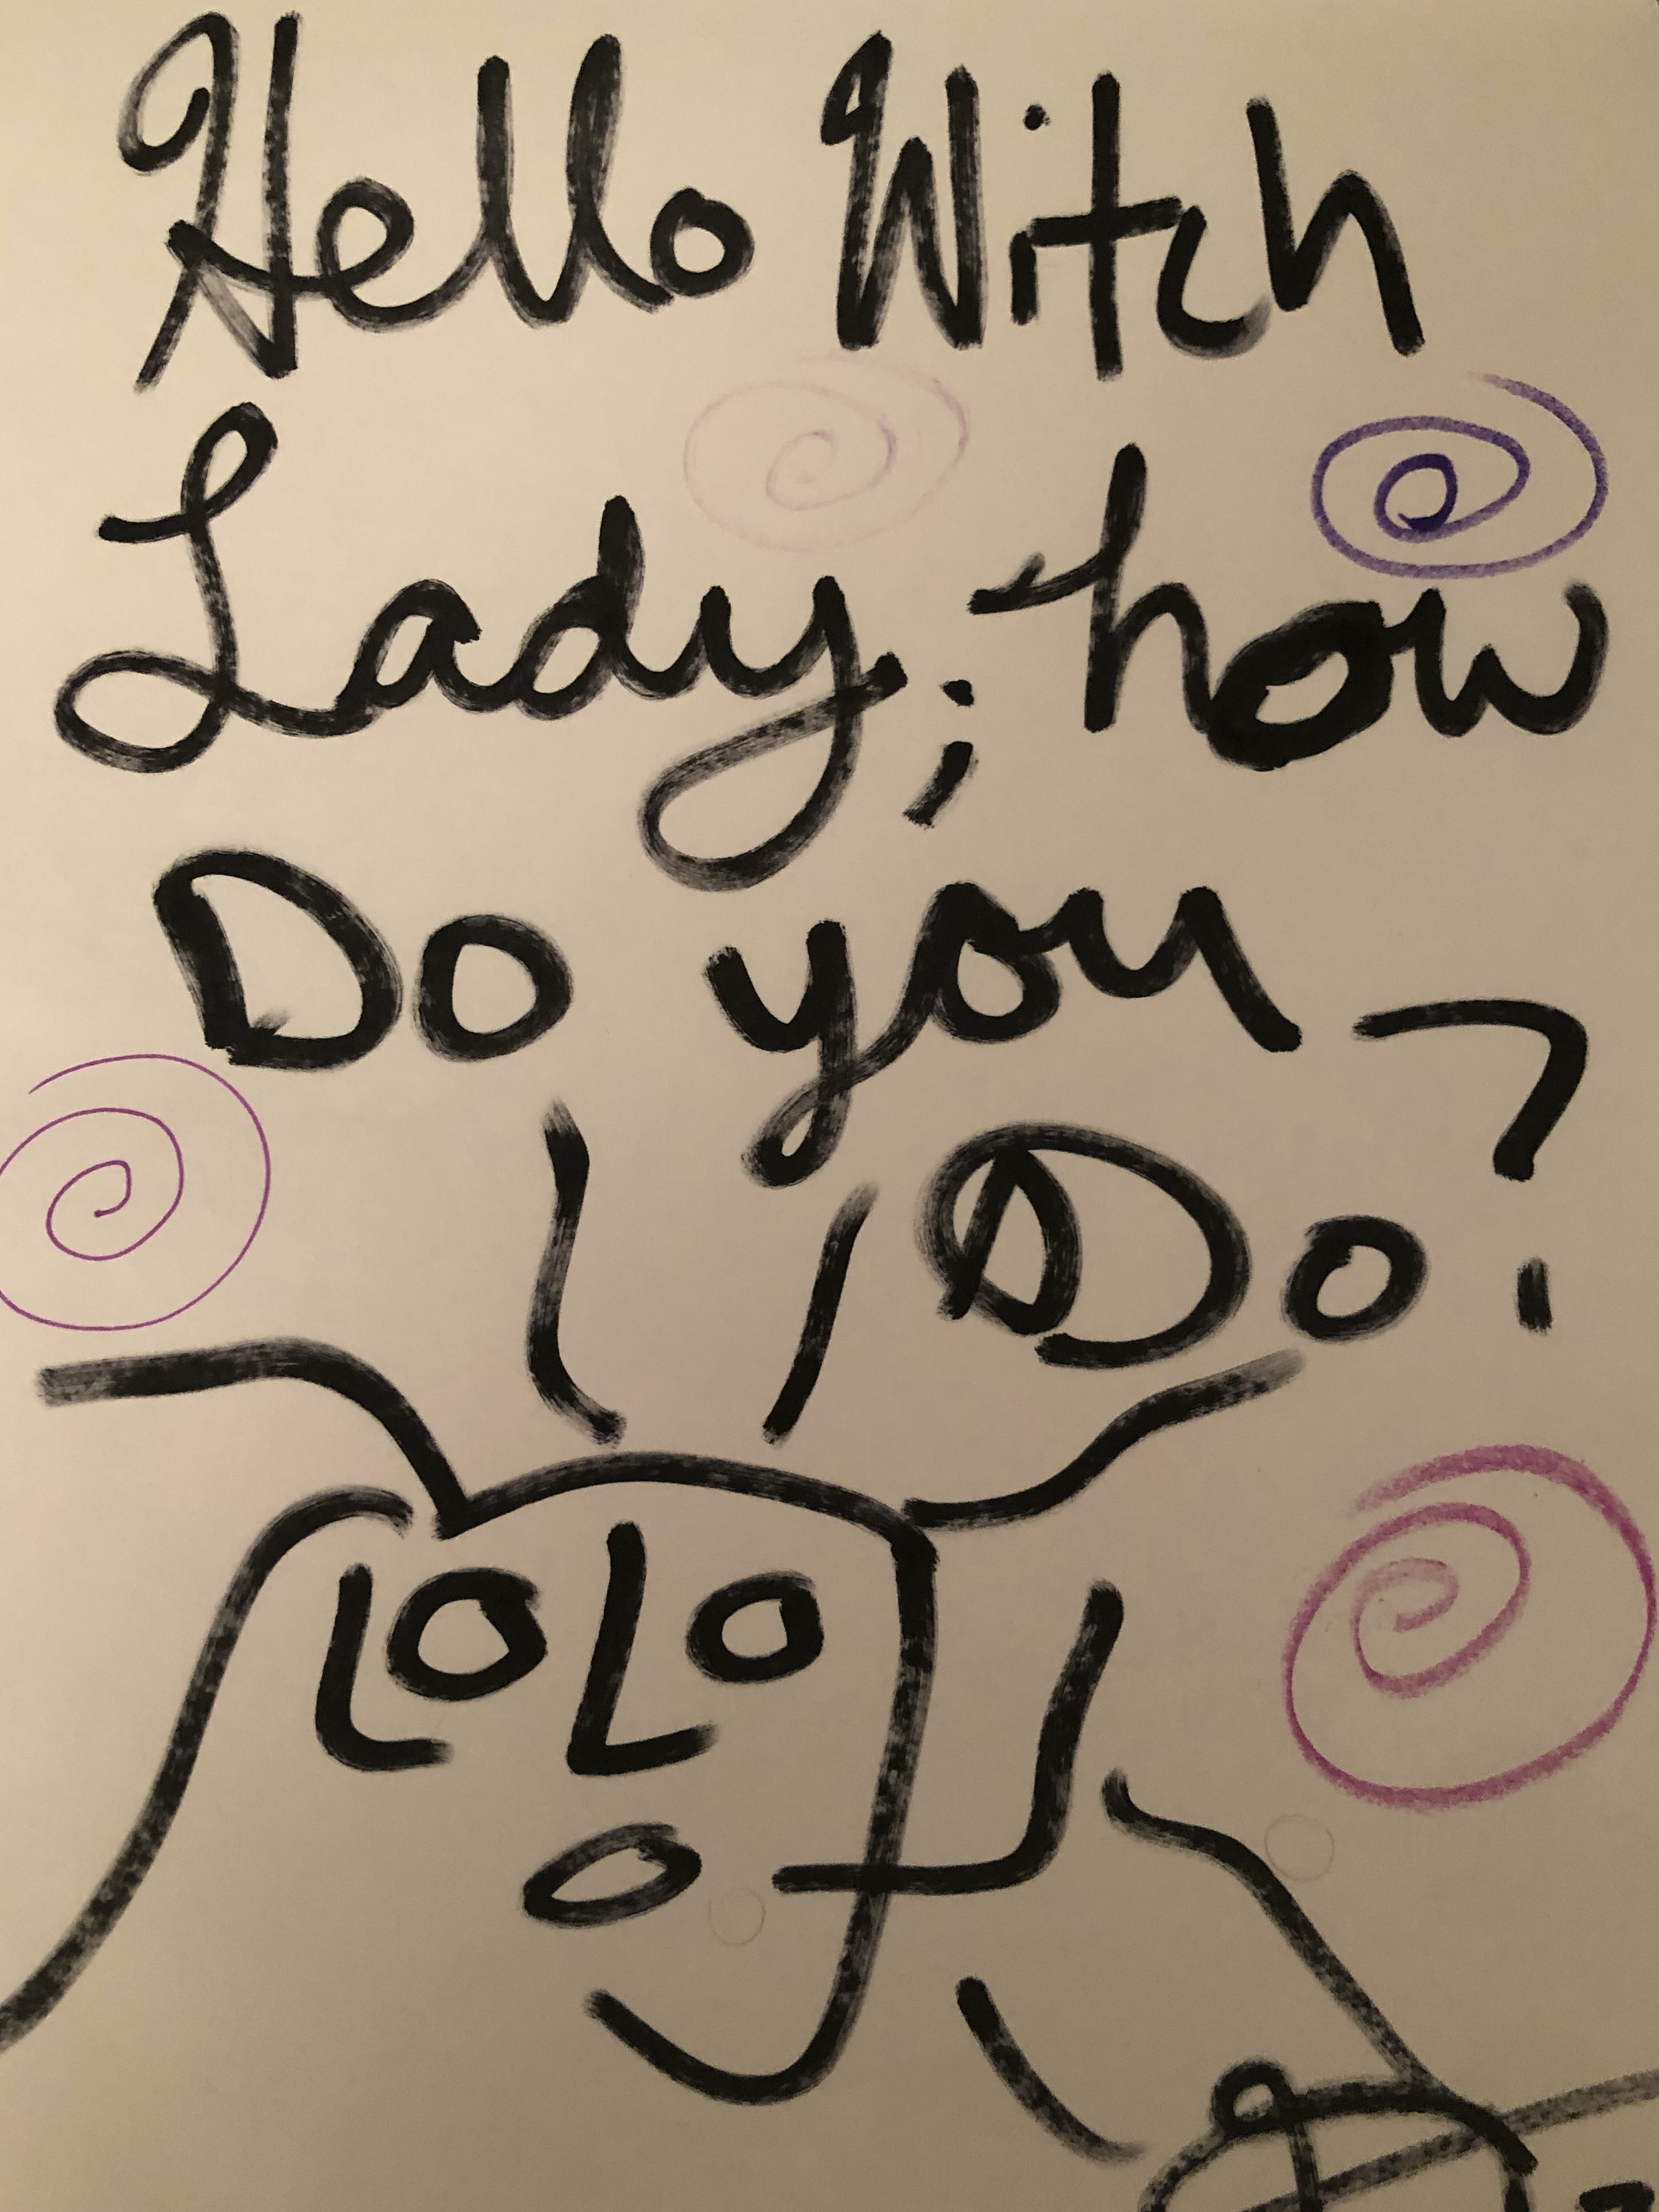 Hello Witch
Lady; how
Do you
Do?